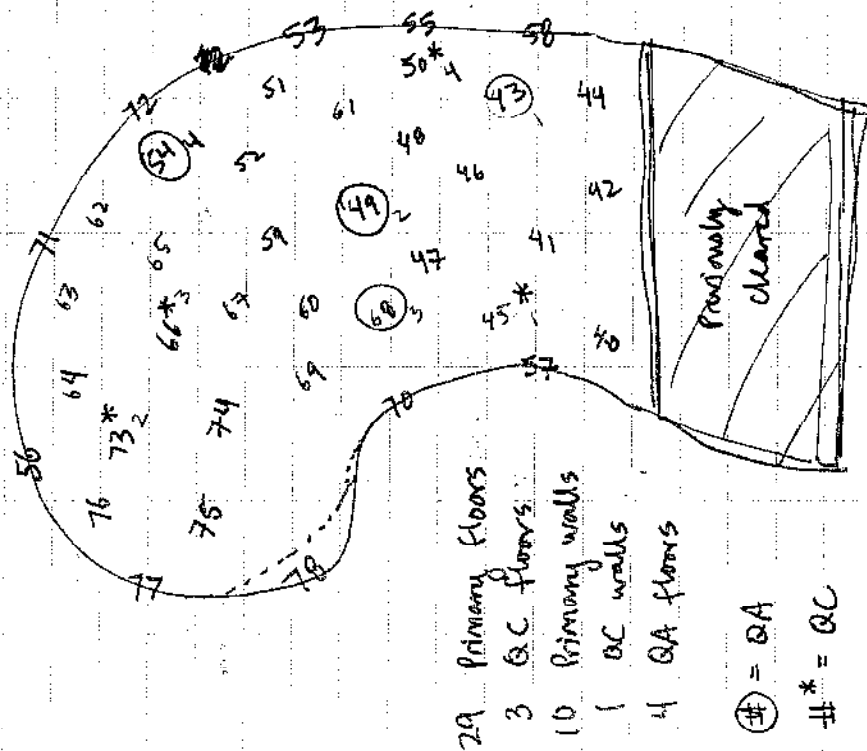 53
55
58
72
51
50* 4
43
44
61
54 4
52
48
46
62
49 2
42
71
59
65
47
41
63
66* 3
67
60
68 3
45*
40
64
69
57
73* 2
74
70
56
76
75
77
78
Previously
cleared
29 Primary floors
3 QC floors
10 Primary walls
1 QC walls
4 QA floors
# = QA
#* = QC